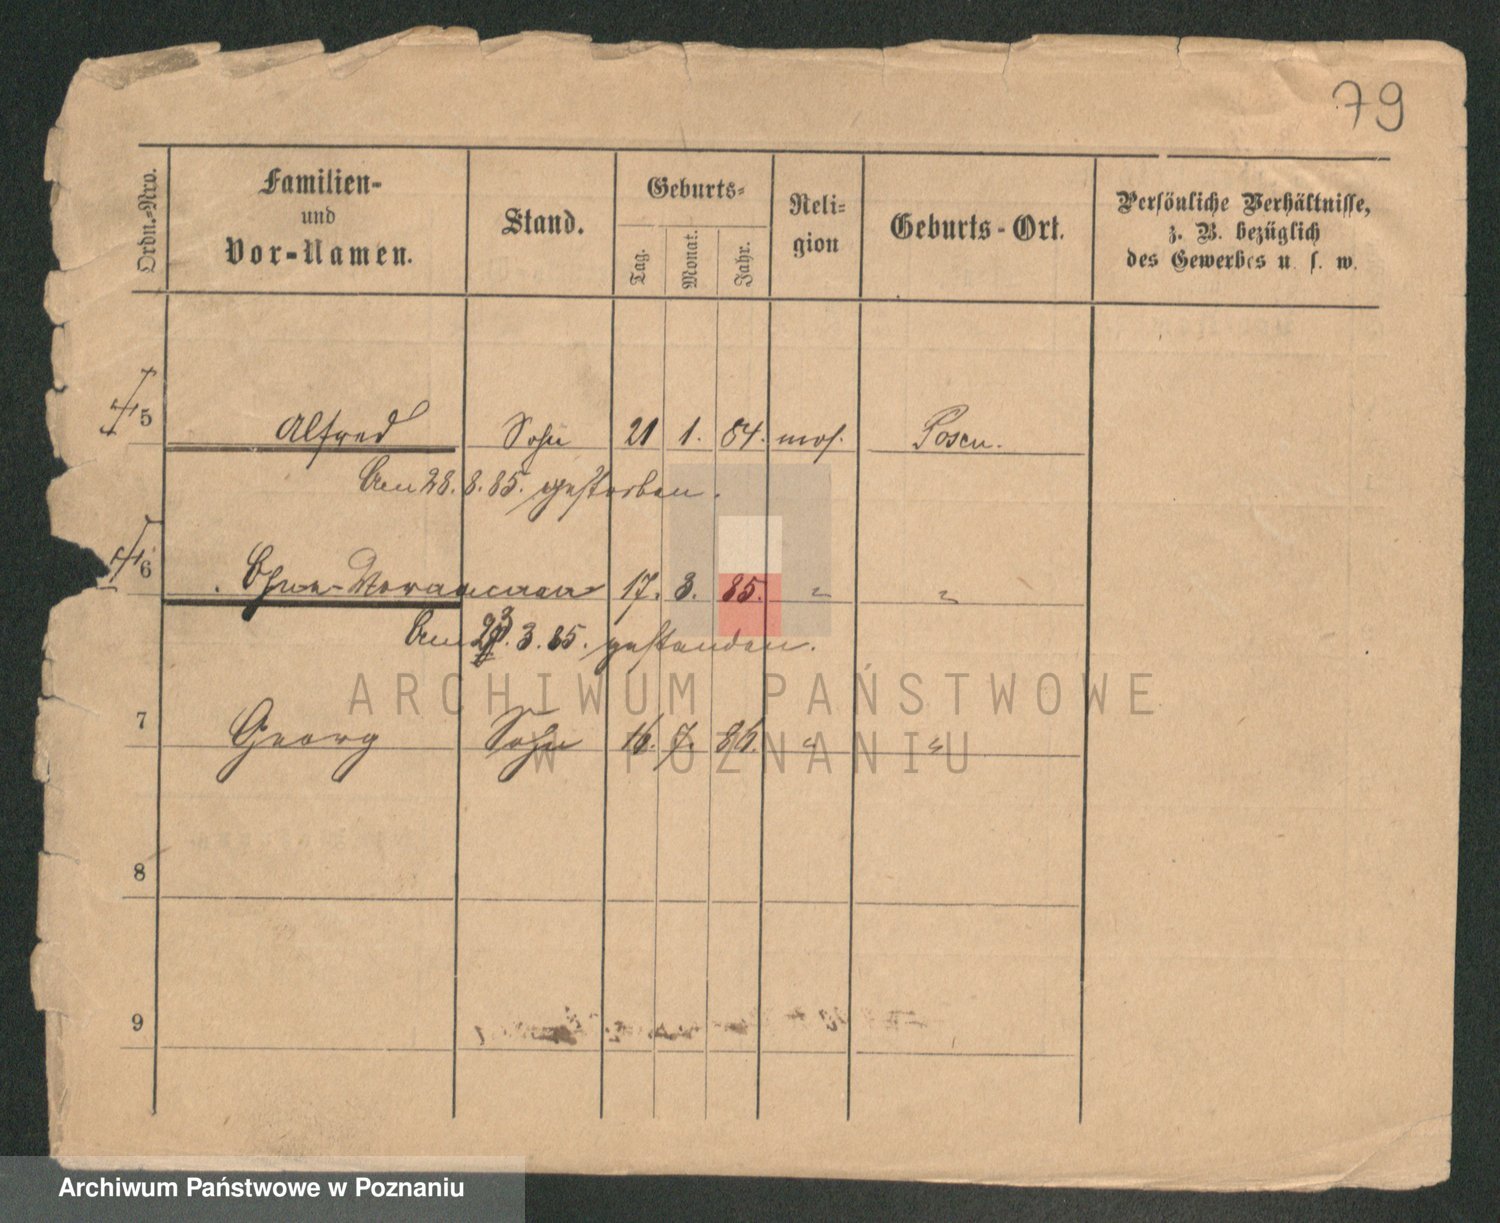 79
Ordn.-Nro.
Familien-
und
Vor-Namen.
Stand.
Geburts-
Tag.
Monat.
Jahr.
Reli-
gion
Geburts-Ort.
Persönliche Verhältnisse,
z. B. bezüglich
des Gewerbes u. s. w.
5 Alfred Sohn 21 1. 84. mos. Posen.
28. 8. 85. gestorben.
6 Ohne-Vornamen 17. 3. 85. " "
3. 85.
7 Georg Sohn 16. 7. 86. " "
8
9
ARCHIWUM PAŃSTWOWE
W POZNANIU
Archiwum Państwowe w Poznaniu